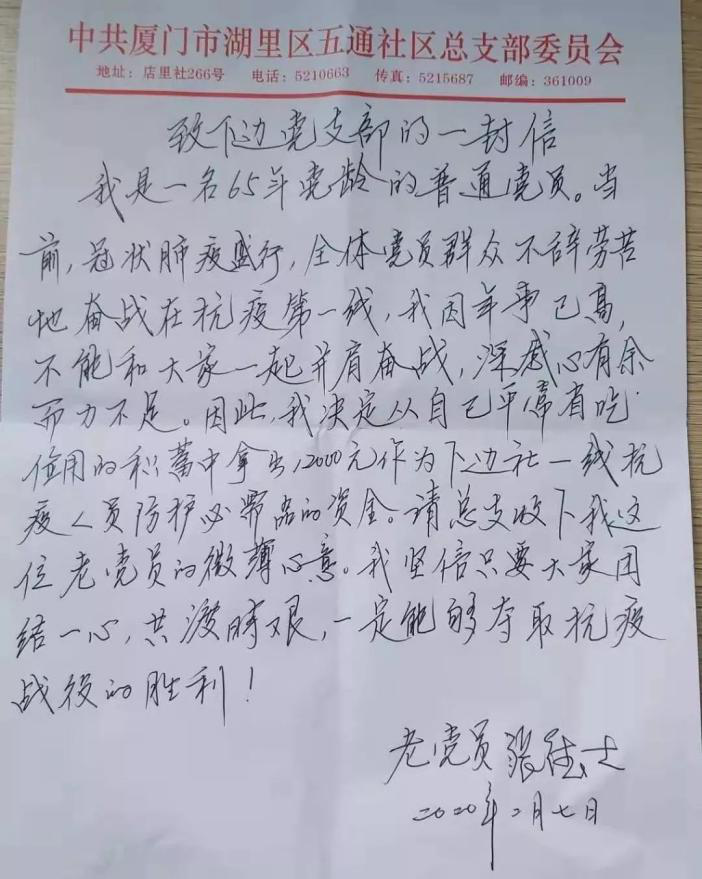 中共厦门市湖里区五通社区总支部委员会
地址：店里社266号 电话：5210663 传真：5215687 邮编：361009
致下边党支部的一封信
我是一名65年党龄的普通党员。当
前，冠状肺疫盛行，全体党员群众不辞劳苦
地奋战在抗疫第一线，我因年事已高，
不能和大家一起并肩奋战，深感心有余
而力不足。因此，我决定从自己平常省吃
俭用的积蓄中拿出12000元作为下边社一线抗
疫人员防护必需品的资金。请总支收下我这
位老党员的微薄心意。我坚信只要大家团
结一心，共渡时艰，一定能够夺取抗疫
战役的胜利！
老党员 张
2020年2月七日